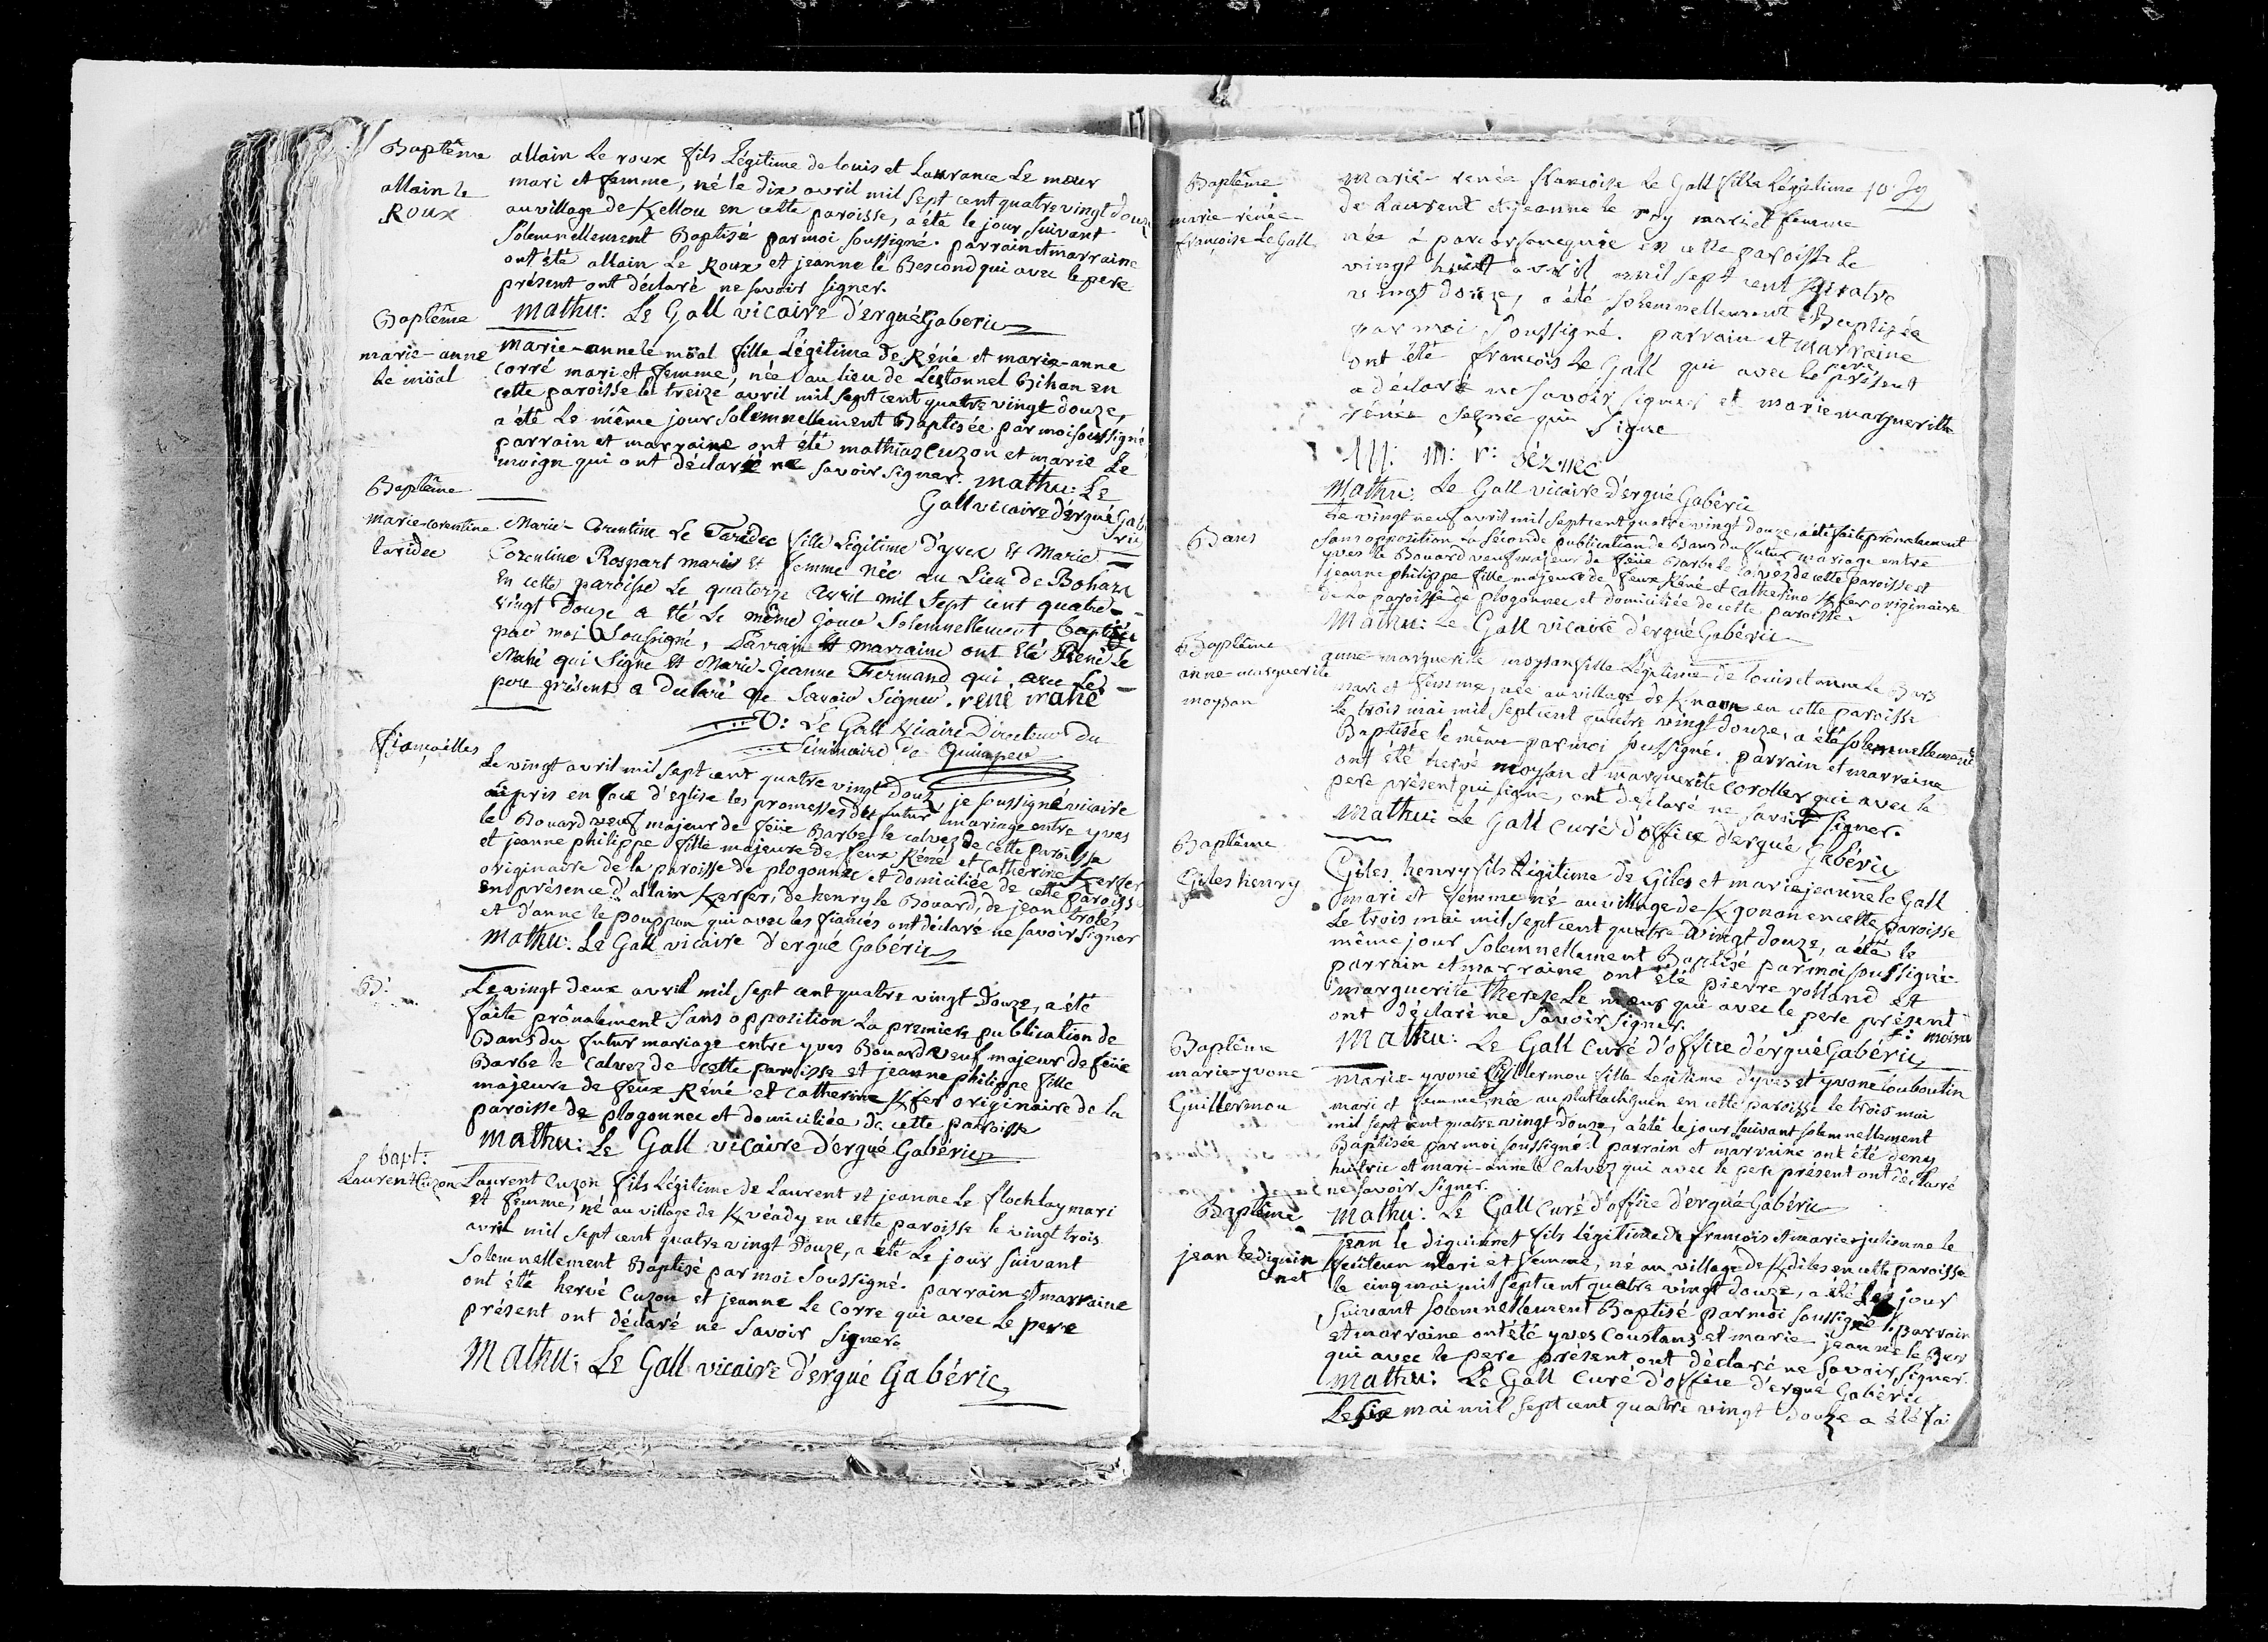 Baptême
allain le
Roux
allain Le roux fils Légitime de louis et Laurance Le mœur
mari et femme, né le dix avril mil sept cent quatre vingt douze
au village de Kellou en cette paroisse, a été le jour suivant
Solemnellement Baptisé par moi soussigné. parrain et marraine
ont été allain Le Roux et jeanne le Bescond qui avec le pere
présent ont déclaré ne savoir signer.
Mathu: Le Gall vicaire d'ergué Gaberic
Baptême
marie-anne
le möal
Marie-anne le möal fille Légitime de Réné et marie-anne
Corré mari et femme, née au lieu de Lestonnel Bihan en
cette paroisse le treize avril mil sept cent quatre vingt douze,
a été Le même jour solemnellement Baptisée par moi soussigné
parrain et marraine ont été mathias Cuzon et marie Le
moign qui ont déclaré ne savoir signer. Mathu: Le
Gall vicaire d'ergué Gabé
ric
Baptême
marie-corentine
taridec
Marie-Corentine Le Taridec fille Légitime d'yves Et Marie
Corentine Rospart maris Et femme née au Lieu de Bohars
En cette paroisse Le quatorze Avril mil Sept cent quatre
vingt Douze a été Le même jour Solemnellement baptisée
par moi Soussigné, Parrain Et marraine ont Eté René Le
Mahé qui Signe Et Marie-Jeanne Fermand qui avec Le
pere présents a declaré ne Savoir Signer. rené mahé
V: Le Gall Vicaire Directeur du
Séminaire de Quimper
fiançailles
Le vingt avril mil sept cent quatre vingt douze je soussigné vicaire
ai pris en face d'eglise les promesses du futur mariage entre yves
le Bouard veuf majeur de feüe Barbe le calvez de cette paroisse
et jeanne philippe fille majeure de feux Réné et Catherine Kerfer
originaire de la paroisse de plogonnec et domiciliée de cette paroisse
en présence d'allain Kerfer, de henry le Bouard, de jean trolés,
et d'anne le poupon qui avec les fiancés ont déclaré ne savoir signer
Mathu: Le Gall vicaire d'ergué Gabéric
B.
Le vingt deux avril mil sept cent quatre vingt douze, a été
faite prônalement sans opposition La premiere publication de
Bans du futur mariage entre yves Bouard veuf majeur de feüe
Barbe le calvez de cette paroisse et jeanne philippe fille
majeure de feux Réné et Catherine Kfer originaire de la
paroisse de plogonnec et domiciliée de cette paroisse
Mathu: Le Gall vicaire d'ergué Gabéric
bapt:
Laurent Cuzon
Laurent Cuzon fils Légitime de Laurent et jeanne Le flochlay mari
et femme, né au village de Kvéady en cette paroisse le vingt trois
avril mil sept cent quatre vingt douze, a été Le jour suivant
Solemnellement Baptisé par moi Soussigné. parrain et marraine
ont été hervé Cuzon et jeanne Le Corre qui avec Le pere
présent ont déclaré ne Savoir Signer
Mathu: Le Gall vicaire d'ergué Gabéric
Baptême
marie-rénée-
françoise Le Gall
Marie-renée françoise Le Gall fille Légitime 10
de Laurent et jeanne le roy mari et femme
née à en cette paroisse Le
vingt huit avril mil sept cent quatre
vingt douze, a été Solemnellement Baptisée
par moi Soussigné. parrain et marraine
ont été françois Le Gall qui avec le pere présent
a déclaré ne savoir signer et marie marguerite
rénée Seznec qui Signe
M: m: r: séznec
Mathu: Le Gall vicaire d'ergué Gabéric
Bans
Le vingt neuf avril mil sept cent quatre vingt douze, a été faite prônalement
sans opposition la séconde publication de Bans du futur mariage entre
yves le Bouard veuf majeur de feüe Barbe le calvez de cette paroisse et
jeanne philippe fille majeure de feux Réné et Catherine Kfer originaire
de la paroisse de plogonnec et domiciliée de cette paroisse
Mathu: Le Gall vicaire d'ergué Gabéric
Baptême
anne-marguerite
moysan
anne-marguerite moysan fille Légitime de louis et anne Le Bars
mari et femme, née au village de Knaou en cette paroisse
Le trois mai mil sept cent quatre vingt douze, a été solemnellement
Baptisée le même par moi soussigné. parrain et marraine
ont été hervé moysan et marguerite Corollér qui avec le
pere présent qui signe, ont déclaré ne savoir signer.
Mathu: Le Gall curé d'office d'ergué Gabéric
Baptême
Giles henry
Giles henry fils Légitime de Giles et marie jeanne le Gall
mari et femme né au village de Kgonan en cette paroisse
Le trois mai mil sept cent quatre vingt douze, a été le
même jour solemnellement Baptisé par moi soussigné.
parrain et marraine ont été pierre rolland et
marguerite therese Le mœur qui avec le pere présent
ont déclaré ne savoir signer.
Mathu: Le Gall Curé d'office d'ergué Gabéric
Baptême
marie-yvone
Guillermou
Marie-yvone Guillermou fille Legitime d'yves et yvone Louboutin
mari et femme, née au en cette paroisse le trois mai
mil sept cent quatre vingt douze, a été le jour suivant solemnellement
Baptisée par moi soussigné. parrain et marraine ont été deny
hutric et mari-anne le calvez qui avec le pere présent ont déclaré
ne savoir signer.
Mathu: Le Gall Curé d'office d'ergué Gabéric
Baptême
jean le diguin
enet
jean le diguinnet fils légitime de françois et marie-julienne le
feüteun mari et femme, né au village de Kdiles en cette paroisse
le cinq mai mil sept cent quatre vingt douze, a été Le jour
suivant solemnellement Baptisé par moi soussigné. parrain
et marraine ont été yves Coustans et marie-jeanne le Ber
qui avec le pere présent ont déclaré ne savoir signer.
Mathu: Le Gall Curé d'office d'ergué Gabéric
Le six mai mil sept cent quatre vingt douze a été fai